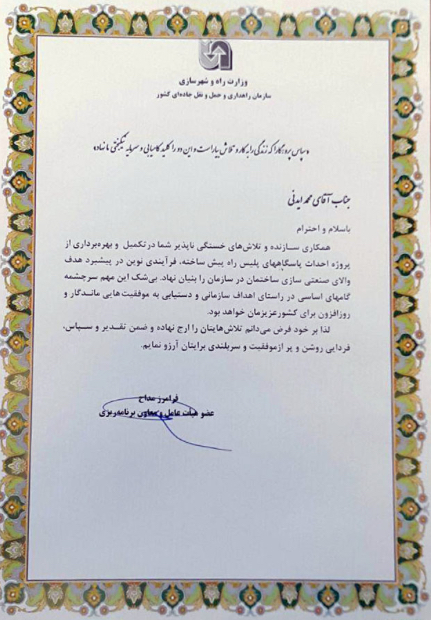 وزارت راه و شهرسازی
سازمان راهداری و حمل و نقل جاده‌ای کشور
«سپاس پروردگار را که زندگی را به کار و تلاش بیاراست و این دو را کلید کامیابی و سرمایه نیکبختی ما نهاد»
جناب آقای محمد ایدنی
باسلام و احترام
همکاری سازنده و تلاش‌های خستگی ناپذیر شما در تکمیل و بهره‌برداری از
پروژه احداث پاسگاههای پلیس راه پیش ساخته، فرآیندی نوین در پیشبرد هدف
والای صنعتی سازی ساختمان در سازمان را بنیان نهاد. بی‌شک این مهم سرچشمه
گامهای اساسی در راستای اهداف سازمانی و دستیابی به موفقیت هایی ماندگار و
روزافزون برای کشور عزیزمان خواهد بود.
لذا بر خود فرض می‌دانم تلاش‌هایتان را ارج نهاده و ضمن تقدیر و سپاس،
فردایی روشن و پر ازموفقیت و سربلندی برایتان آرزو نمایم.
فرامرز مداح
عضو هیأت عامل و معاون برنامه‌ریزی